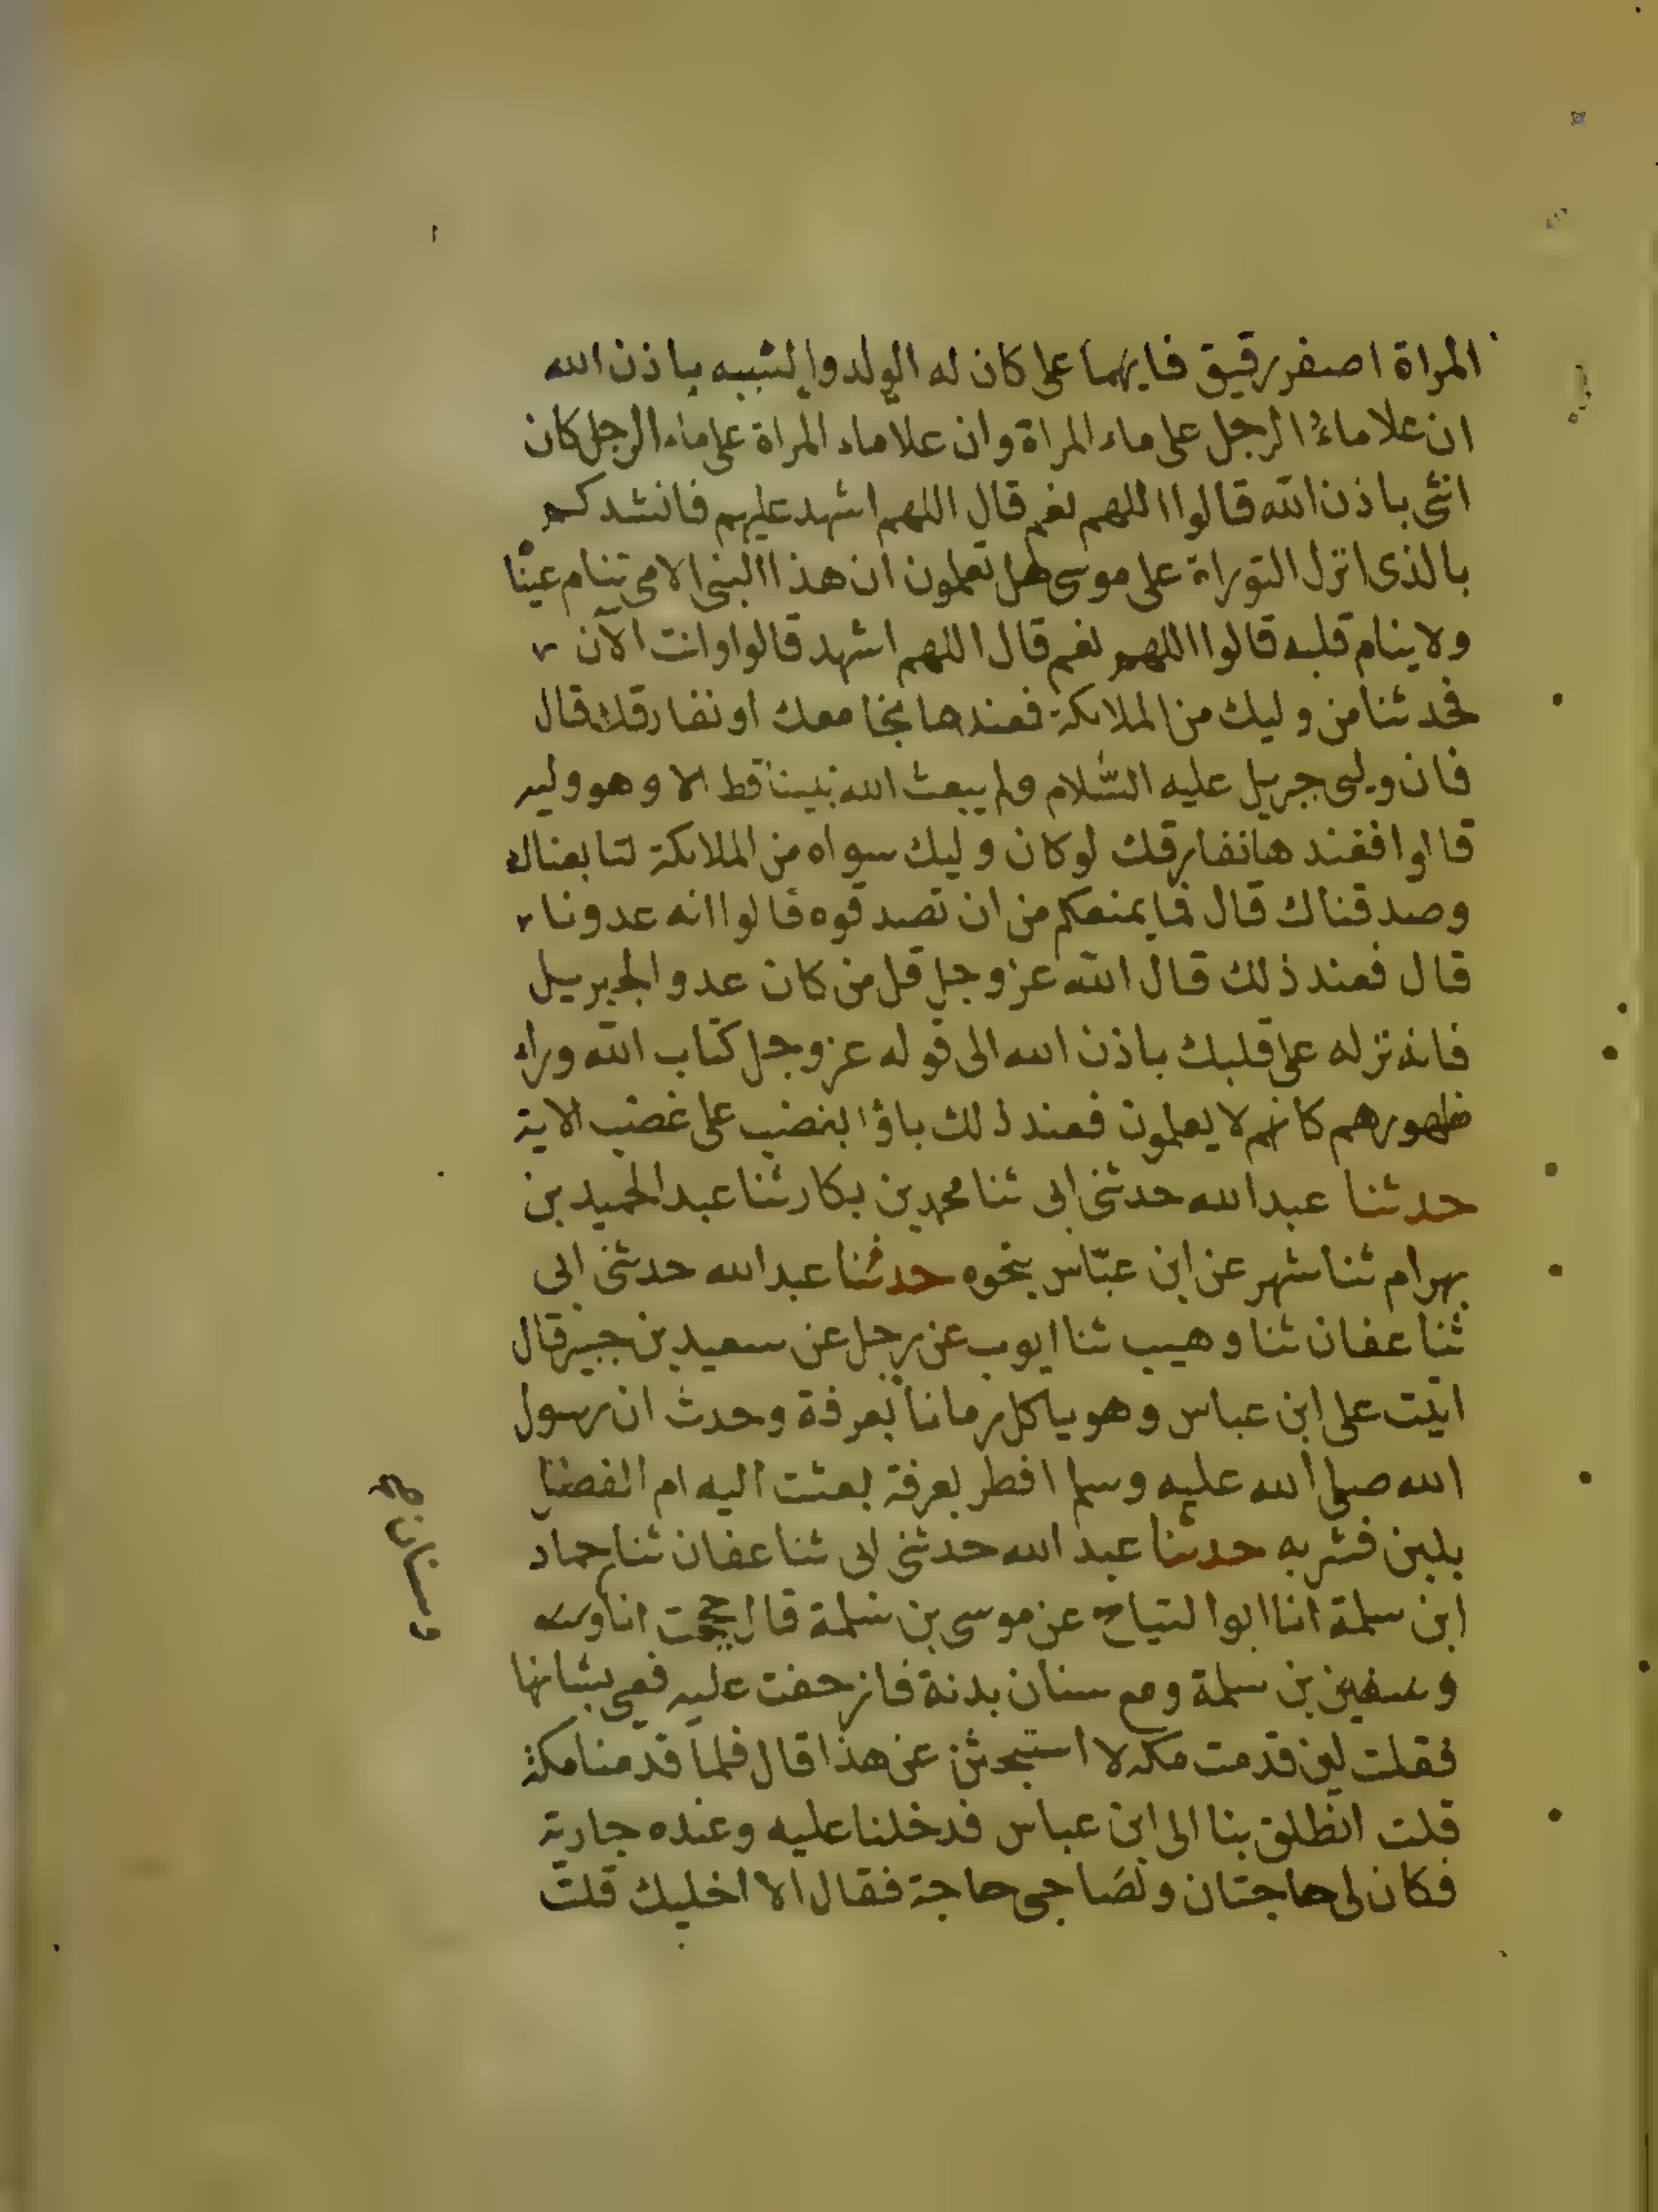 المراة اصفر رقيق فايهما على كان له الولد والشبه باذن الله
ان علا ماءُ الرجل على ماء المراة وان علا ماء المراة على ماء الرجل كان
انثى باذن الله قالوا اللهم نعم قال اللهم اشهد عليهم فانشدكم
بالذى انزل التوراة على موسى هل تعلمون ان هذا النبى الامى تنام عيناه
ولا ينام قلبه قالوا اللهم نعم قال اللهم اشهد قالوا وانت الآن
فحدثنا من وليك من الملائكة فعندها نجامعك او نفارقك قال
فان وليى جبريل عليه السّلام ولم يبعث الله نبينا قط الا وهو وليه
قالوا فعندها نفارقك لو كان وليك سواه من الملائكة لتابعناك
وصدقناك قال فما يمنعكم من ان تصدقوه قالوا انه عدونا
قال فعند ذلك قال الله عز وجل قل من كان عدوا لجبريل
فانه نزله على قلبك باذن الله الى قوله عز وجل كتاب الله وراء
ظهورهم كانهم لا يعلمون فعند ذلك باؤا بغضب على غضب الاية
حدثنا عبد الله حدثنى ابى ثنا محمد بن بكار ثنا عبد الحميد بن
بهرام ثنا شهر عن ابن عبّاس بنحوه حدثنا عبد الله حدثنى ابى
ثنا عفان ثنا وهيب ثنا ايوب عن رجل عن سعيد بن جبير قال
اتيت على ابن عباس وهو ياكل رمانا بعرفة وحدث ان رسول
الله صلى الله عليه وسلم افطر بعرفة بعثت اليه ام الفضل
بلبن فشربه حدثنا عبد الله حدثنى ابى ثنا عفان ثنا حماد
ابن سلمة انا ابو التياح عن موسى بن سلمة قال حججت انا
وسنان
بن سلمة ومع سنان بدنة فازحفت عليه فعى بشانها
فقلت لين قدمت مكه لا استبحثن عن هذا قال فلما قدمنا مكة
قلت انطلق بنا الى ابن عباس فدخلنا عليه وعنده جارية
فكان لى حاجتان ولصَاحبى حاجة فقال الا اخليك قلت